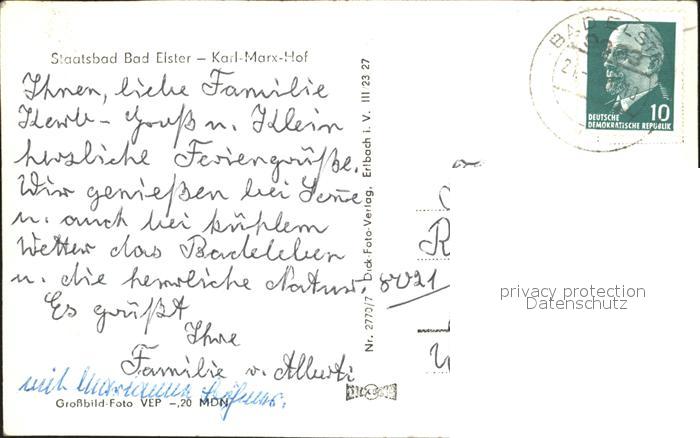 Staatsbad Bad Elster – Karl-Marx-Hof
Ihnen, liebe Familie
Groß u. Klein
herzliche Feriengrüße.
Wir genießen bei Sonne
u. auch bei kühlem
Wetter das Badeleben
u. die herrliche Natur.
Es grüßt
Ihre
Familie v. Alberti
mit Marianne
Großbild-Foto VEP –,20 MDN
Nr. 2770/7 Dick-Foto-Verlag, Erlbach i. V. III 23 27
BAD ELSTER
10
DEUTSCHE
DEMOKRATISCHE REPUBLIK
8021
privacy protection
Datenschutz